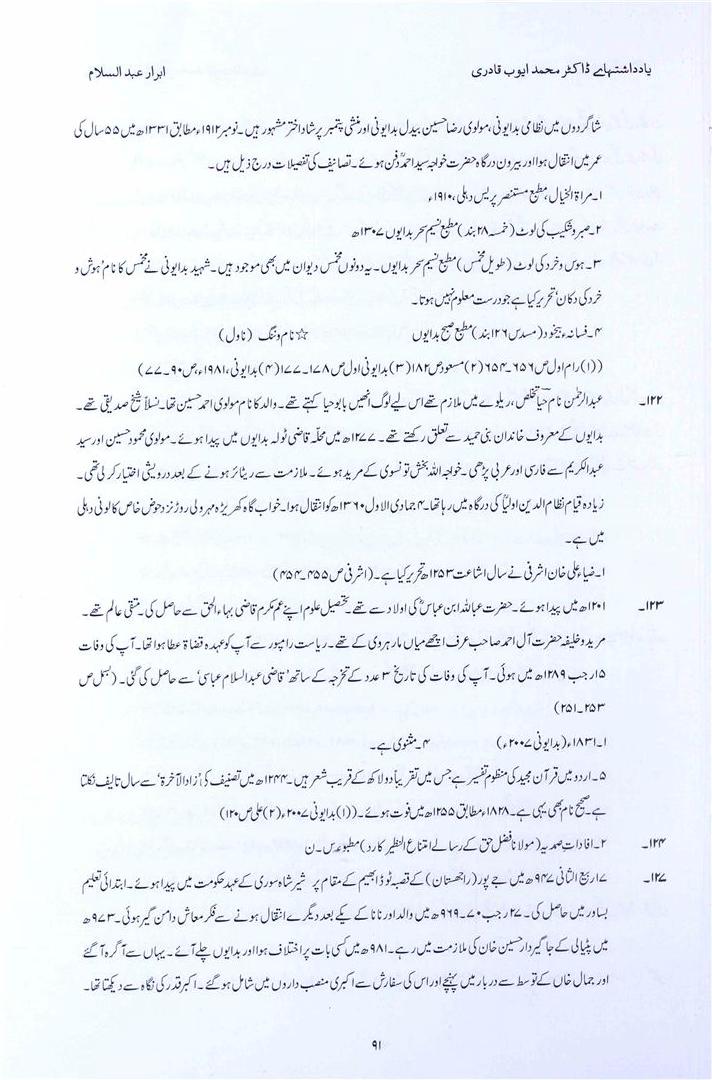 یادداشتہاے ڈاکٹر محمد ایوب قادری
ابرار عبدالسلام
شاگردوں میں نظامی بدایونی، مولوی رضا حسین بیدل بدایونی اور منشی پتمبر پرشاد اختر مشہور ہیں۔ نومبر ۱۹۱۲ء مطابق ۱۳۳۱ھ میں ۵۵ سال کی
عمر میں انتقال ہوا اور بیرون درگاہ حضرت خواجہ سید احمدؒ دفن ہوئے۔ تصانیف کی تفصیلات درج ذیل ہیں۔
۱۔ مراۃ الخیال، مطبع مستنصر پریس دہلی، ۱۹۱۰ء
۲۔ صبر و شکیب کی لوٹ (خمسہ ۲۸ بند) مطبع نسیم سحر بدایوں ۱۳۰۷ھ
۳۔ ہوس و خرد کی لوٹ (طویل مخمس) مطبع نسیم سحر بدایوں۔ یہ دونوں مخمس دیوان میں بھی موجود ہیں۔ شہید بدایونی نے مخمس کا نام ’ہوش و
خرد کی دکان‘ تحریر کیا ہے جو درست معلوم نہیں ہوتا۔
۴۔ فسانۂ بیخود (مسدس ۱۲۶ بند) مطبع صبح بدایوں ☆ نام و ننگ (ناول)
((۱) رام اول ص ۶۵۶۔۶۵۴ (۲) مسعود ص ۱۸۲ (۳) بدایونی اول ص ۱۷۸۔۱۷۷ (۴) بدایونی، ۱۹۸۱ء، ص ۹۰۔۷۷)
۱۲۲۔ عبدالرحمٰن نام حیا تخلص، ریلوے میں ملازم تھے اس لیے لوگ انھیں بابو حیا کہتے تھے۔ والد کا نام مولوی احمد حسین تھا۔ نسلاً شیخ صدیقی تھے۔
بدایوں کے معروف خاندان بنی حمید سے تعلق رکھتے تھے۔ ۱۲۷۷ھ میں محلّہ قاضی ٹولہ بدایوں میں پیدا ہوئے۔ مولوی محمود حسین اور سید
عبدالکریم سے فارسی اور عربی پڑھی۔ خواجہ اللہ بخش تونسوی کے مرید ہوئے۔ ملازمت سے ریٹائر ہونے کے بعد درویشی اختیار کر لی تھی۔
زیادہ قیام نظام الدین اولیاؒ کی درگاہ میں رہا تھا۔ ۴ جمادی الاول ۱۳۶۰ھ کو انتقال ہوا۔ خواب گاہ کھریڑہ مہرولی روڈ نزد حوض خاص کالونی دہلی
میں ہے۔
۱۔ ضیاء علی خان اشرفی نے سال اشاعت ۱۲۵۳ھ تحریر کیا ہے۔ (اشرفی ص ۴۵۵۔۴۵۴)
۱۲۳۔ ۱۲۰۱ھ میں پیدا ہوئے۔ حضرت عبداللہ ابن عباسؓ کی اولاد سے تھے۔ تحصیل علوم اپنے عم مکرم قاضی بہاء الحق سے حاصل کی۔ متقی عالم تھے۔
مرید و خلیفہ حضرت آل احمد صاحب عرف اچھے میاں مارہروی کے تھے۔ ریاست رامپور سے آپ کو عہدہ قضاۃ عطا ہوا تھا۔ آپ کی وفات
۱۵ رجب ۱۲۸۹ھ میں ہوئی۔ آپ کی وفات کی تاریخ ۳ عدد کے تخرجہ کے ساتھ ’قاضی عبدالسلام عباسی‘ سے حاصل کی گئی۔ (بسمل ص
۲۵۳۔۲۵۱)
۱۔ ۱۸۳۱ء (بدایونی ۲۰۰۷ء) ۴۔ مثنوی ہے۔
۵۔ اردو میں قرآن مجید کی منظوم تفسیر ہے جس میں تقریباً دو لاکھ کے قریب شعر ہیں۔ ۱۲۴۴ھ میں تصنیف کی ’زاد الآخرۃ‘ سے سال تالیف نکلتا
ہے۔ صحیح نام بھی یہی ہے۔ ۱۸۲۸ء مطابق ۱۲۵۵ھ میں فوت ہوئے۔ ((۱) بدایونی ۲۰۰۷ء (۲) علی ص ۱۲۰)
۱۲۴۔ ۲۔ افادات صمدیہ (مولانا فضل حق کے رسالے امتناع النظیر کا رد) مطبوعہ س۔ن
۱۲۷۔ ۱۷ ربیع الثانی ۹۴۷ھ میں جے پور (راجھستان) کے قصبہ ٹوڈا بھیم کے مقام پر شیر شاہ سوری کے عہد حکومت میں پیدا ہوئے۔ ابتدائی تعلیم
بساور میں حاصل کی۔ ۲۷ رجب ۷۰۔۹۶۹ھ میں والد اور نانا کے یکے بعد دیگرے انتقال ہونے سے فکر معاش دامن گیر ہوئی۔ ۹۷۳ھ
میں پٹیالی کے جاگیردار حسین خان کی ملازمت میں رہے۔ ۹۸۱ھ میں کسی بات پر اختلاف ہوا اور بدایوں چلے آئے۔ یہاں سے آگرہ آ گئے
اور جمال خاں کے توسط سے دربار میں پہنچے اور اس کی سفارش سے اکبری منصب داروں میں شامل ہو گئے۔ اکبر قدر کی نگاہ سے دیکھتا تھا۔
۹۱